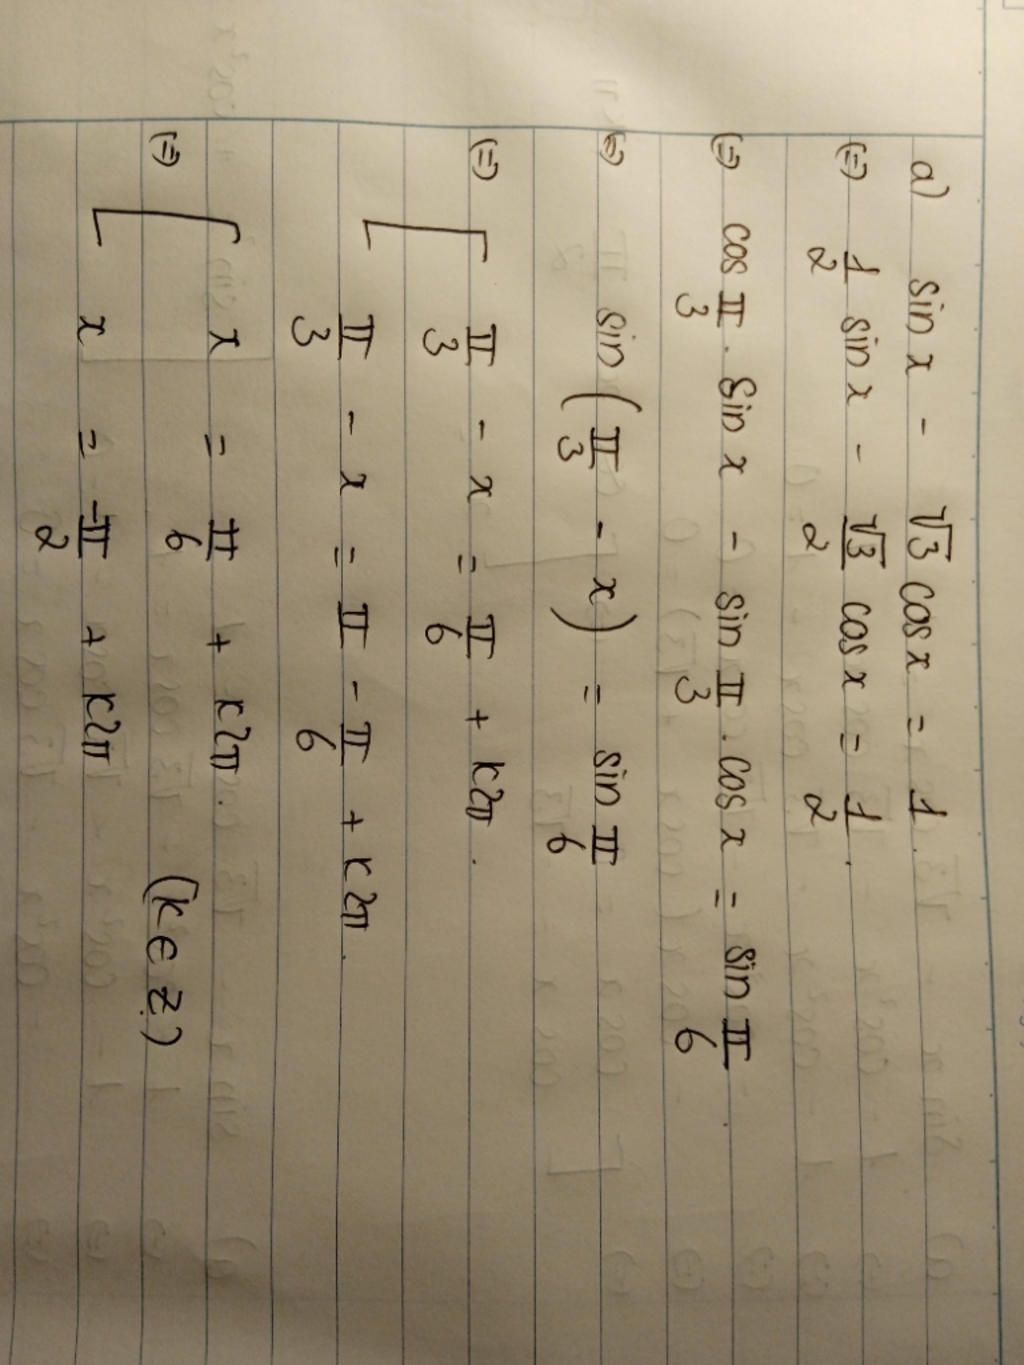 a) sin x - √3 cos x = 1.
(=) 1/2 sin x - √3/2 cos x = 1/2.
(=) cos π/3 . sin x - sin π/3 . cos x = sin π/6
(=) sin (π/3 - x) = sin π/6
(=) [ π/3 - x = π/6 + k2π.
π/3 - x = π - π/6 + k2π.
(=) [ x = π/6 + k2π.
x = -π/2 + k2π (k ∈ Z)